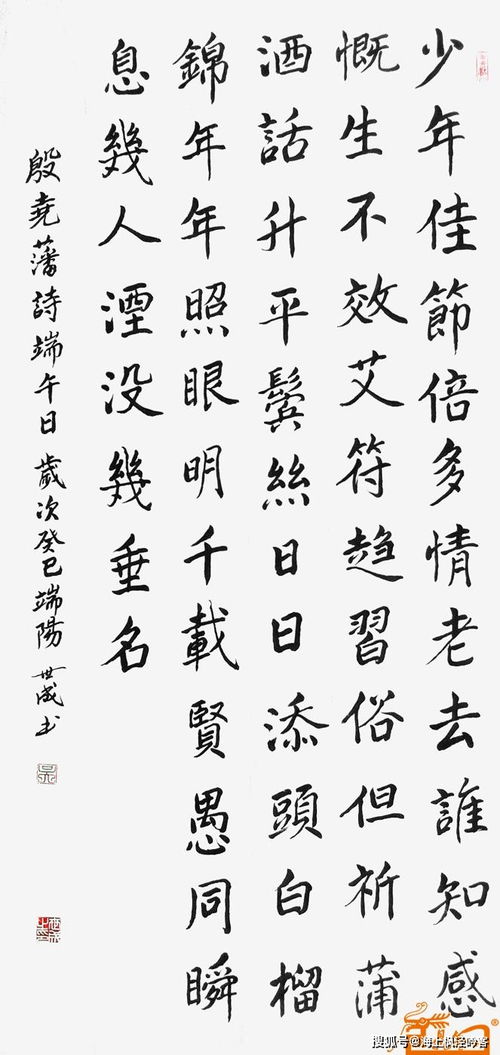 少年佳節倍多情老去誰知感
慨生不效艾符趨習俗但祈蒲
酒話升平鬢絲日日添頭白榴
錦年年照眼明千載賢愚同瞬
息幾人湮没幾垂名
殷堯藩詩端午日歲次癸巳端陽世成书
搜狐号@海上枫泾吟客